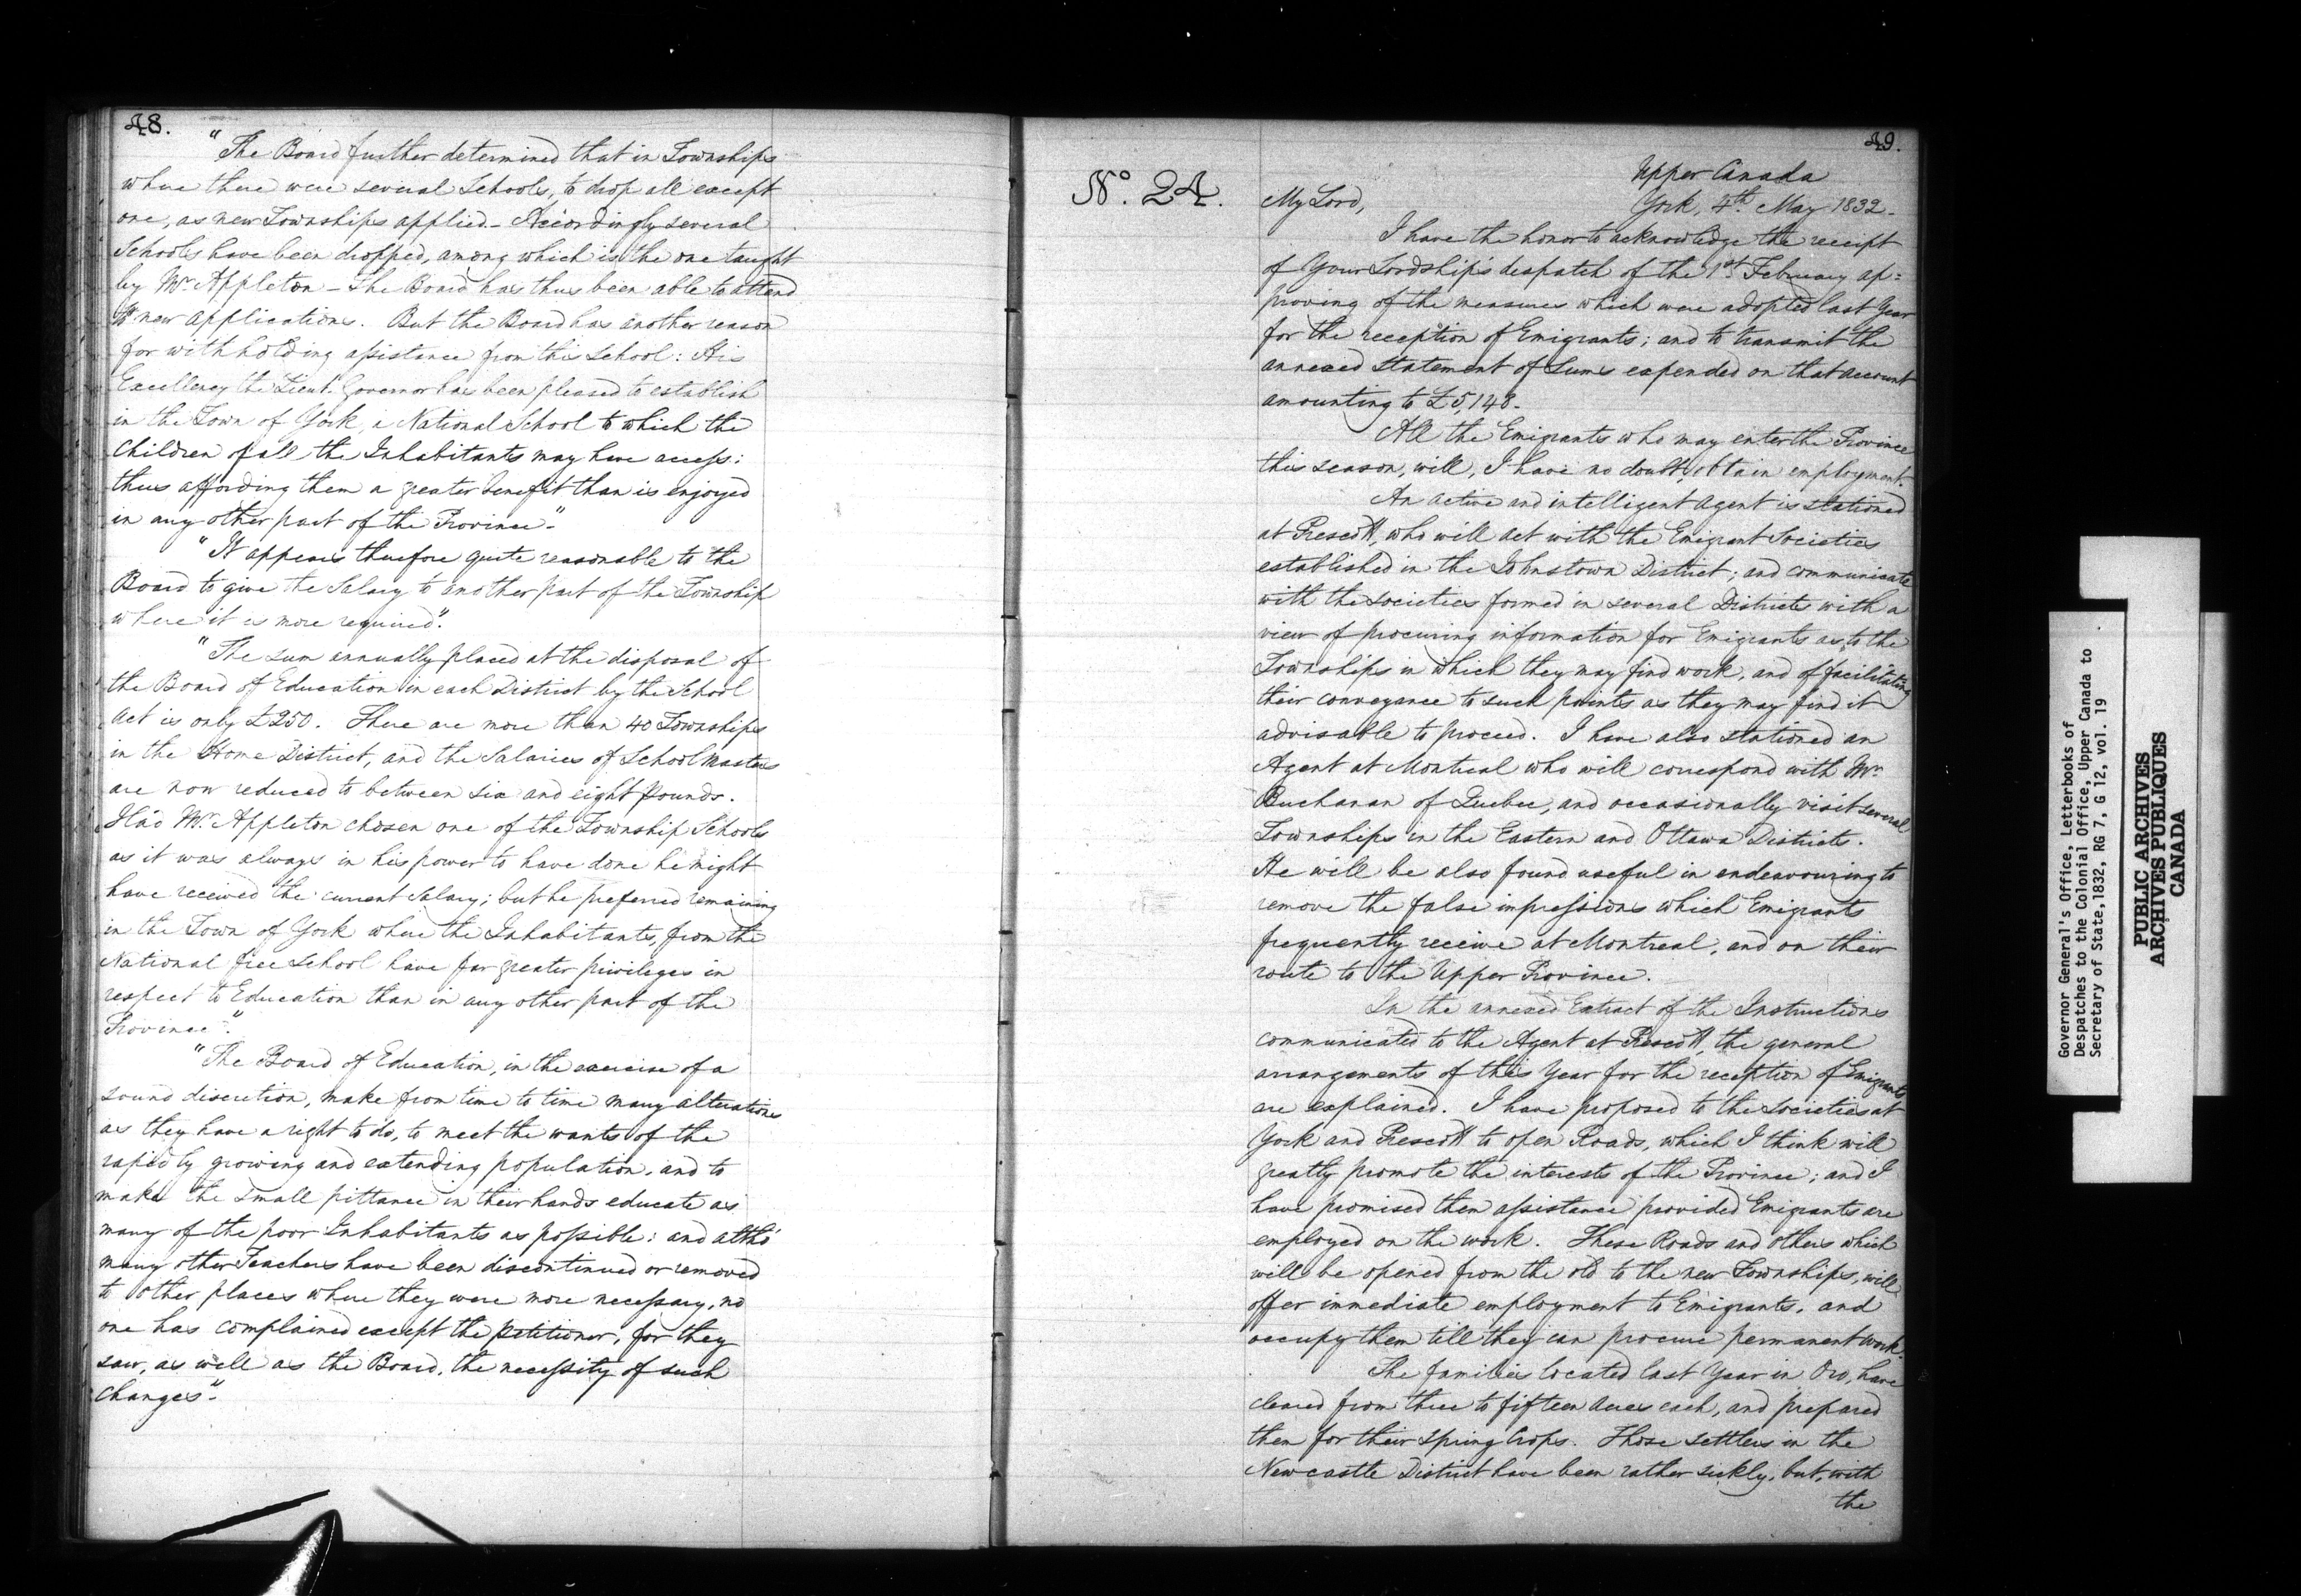 48.
"The Board further determined that in Townships
where there were several Schools, to drop all except
one, as new Townships applied._ Accordingly several
Schools have been dropped, among which is the one taught
by Mr. Appleton _ The Board has thus been able to attend
to new applications. But the Board has another reason
for withholding assistance from this School: His
Excellency the Lieut. Governor has been pleased to establish
in the Town of York, a National School to which the
Children of all the Inhabitants may have access:
thus affording them a greater benefit than is enjoyed
in any other part of the Province"._
"It appears therefore quite reasonable to the
Board to give the Salary to another part of the Township
where it is more required".
"The sum annually placed at the disposal of
the Board of Education in each District by the School
Act is only £250. There are more than 40 Townships
in the Home District, and the Salaries of School Masters
are now reduced to between six and eight Pounds.
Had Mr. Appleton chosen one of the Township Schools
as it was always in his power to have done he might
have received the current Salary; but he preferred remaining
in the Town of York where the Inhabitants, from the
National free School have far greater privileges in
respect to Education than in any other part of the
Province".
"The Board of Education, in the exercise of a
sound discretion, make from time to time many alterations
as they have a right to do, to meet the wants of the
rapidly growing and extending population, and to
make the small pittance in their hands educate as
many of the poor Inhabitants as possible: and altho'
many other Teachers have been discontinued or removed
to other places where they were more necessary, no
one has complained except the petitioner, for they
saw, as well as the Board, the necessity of such
changes".
49.
Upper Canada
No. 24.
My Lord,
York, 4th. May 1832.
I have the honor to acknowledge the receipt
of Your Lordship's despatch of the 1st. February ap=
proving of the measures which were adopted last Year
for the reception of Emigrants; and to transmit the
annexed Statement of Sums expended on that account
amounting to £5,148._
All the Emigrants who may enter the Province
this season, will, I have no doubt, obtain employment.
An active and intelligent agent is stationed
at Prescott, who will act with the Emigrant Societies
established in the Johnstown District; and communicate
with the societies formed in several Districts with a
view of procuring information for Emigrants as to the
Townships in which they may find work, and of facilitating
their conveyance to such points as they may find it
advisable to proceed. I have also stationed an
Agent at Montreal who will correspond with Mr.
Buchanan of Quebec, and occasionally visit several
Townships in the Eastern and Ottawa Districts.
He will be also found useful in endeavouring to
remove the false impressions which Emigrants
frequently receive at Montreal, and on their
route to the Upper Province.
In the annexed Extract of the Instructions
communicated to the Agent at Prescott, the general
arrangements of this Year for the reception of Emigrants
are explained. I have proposed to the Societies at
York and Prescott to open Roads, which I think will
greatly promote the interests of the Province; and I
have promised them assistance provided Emigrants are
employed on the work. These Roads and others which
will be opened from the old to the new Townships, will
offer immediate employment to Emigrants, and
occupy them till they can procure permanent work.
The families located last Year in Oro, have
cleared from three to fifteen Acres each, and prepared
them for their Spring Crops. Those settlers in the
Newcastle District have been rather sickly, but, with
the
Governor General's Office, Letterbooks of
Despatches to the Colonial Office, Upper Canada to
Secretary of State,1832, RG 7, G 12, vol. 19
PUBLIC ARCHIVES
ARCHIVES PUBLIQUES
CANADA